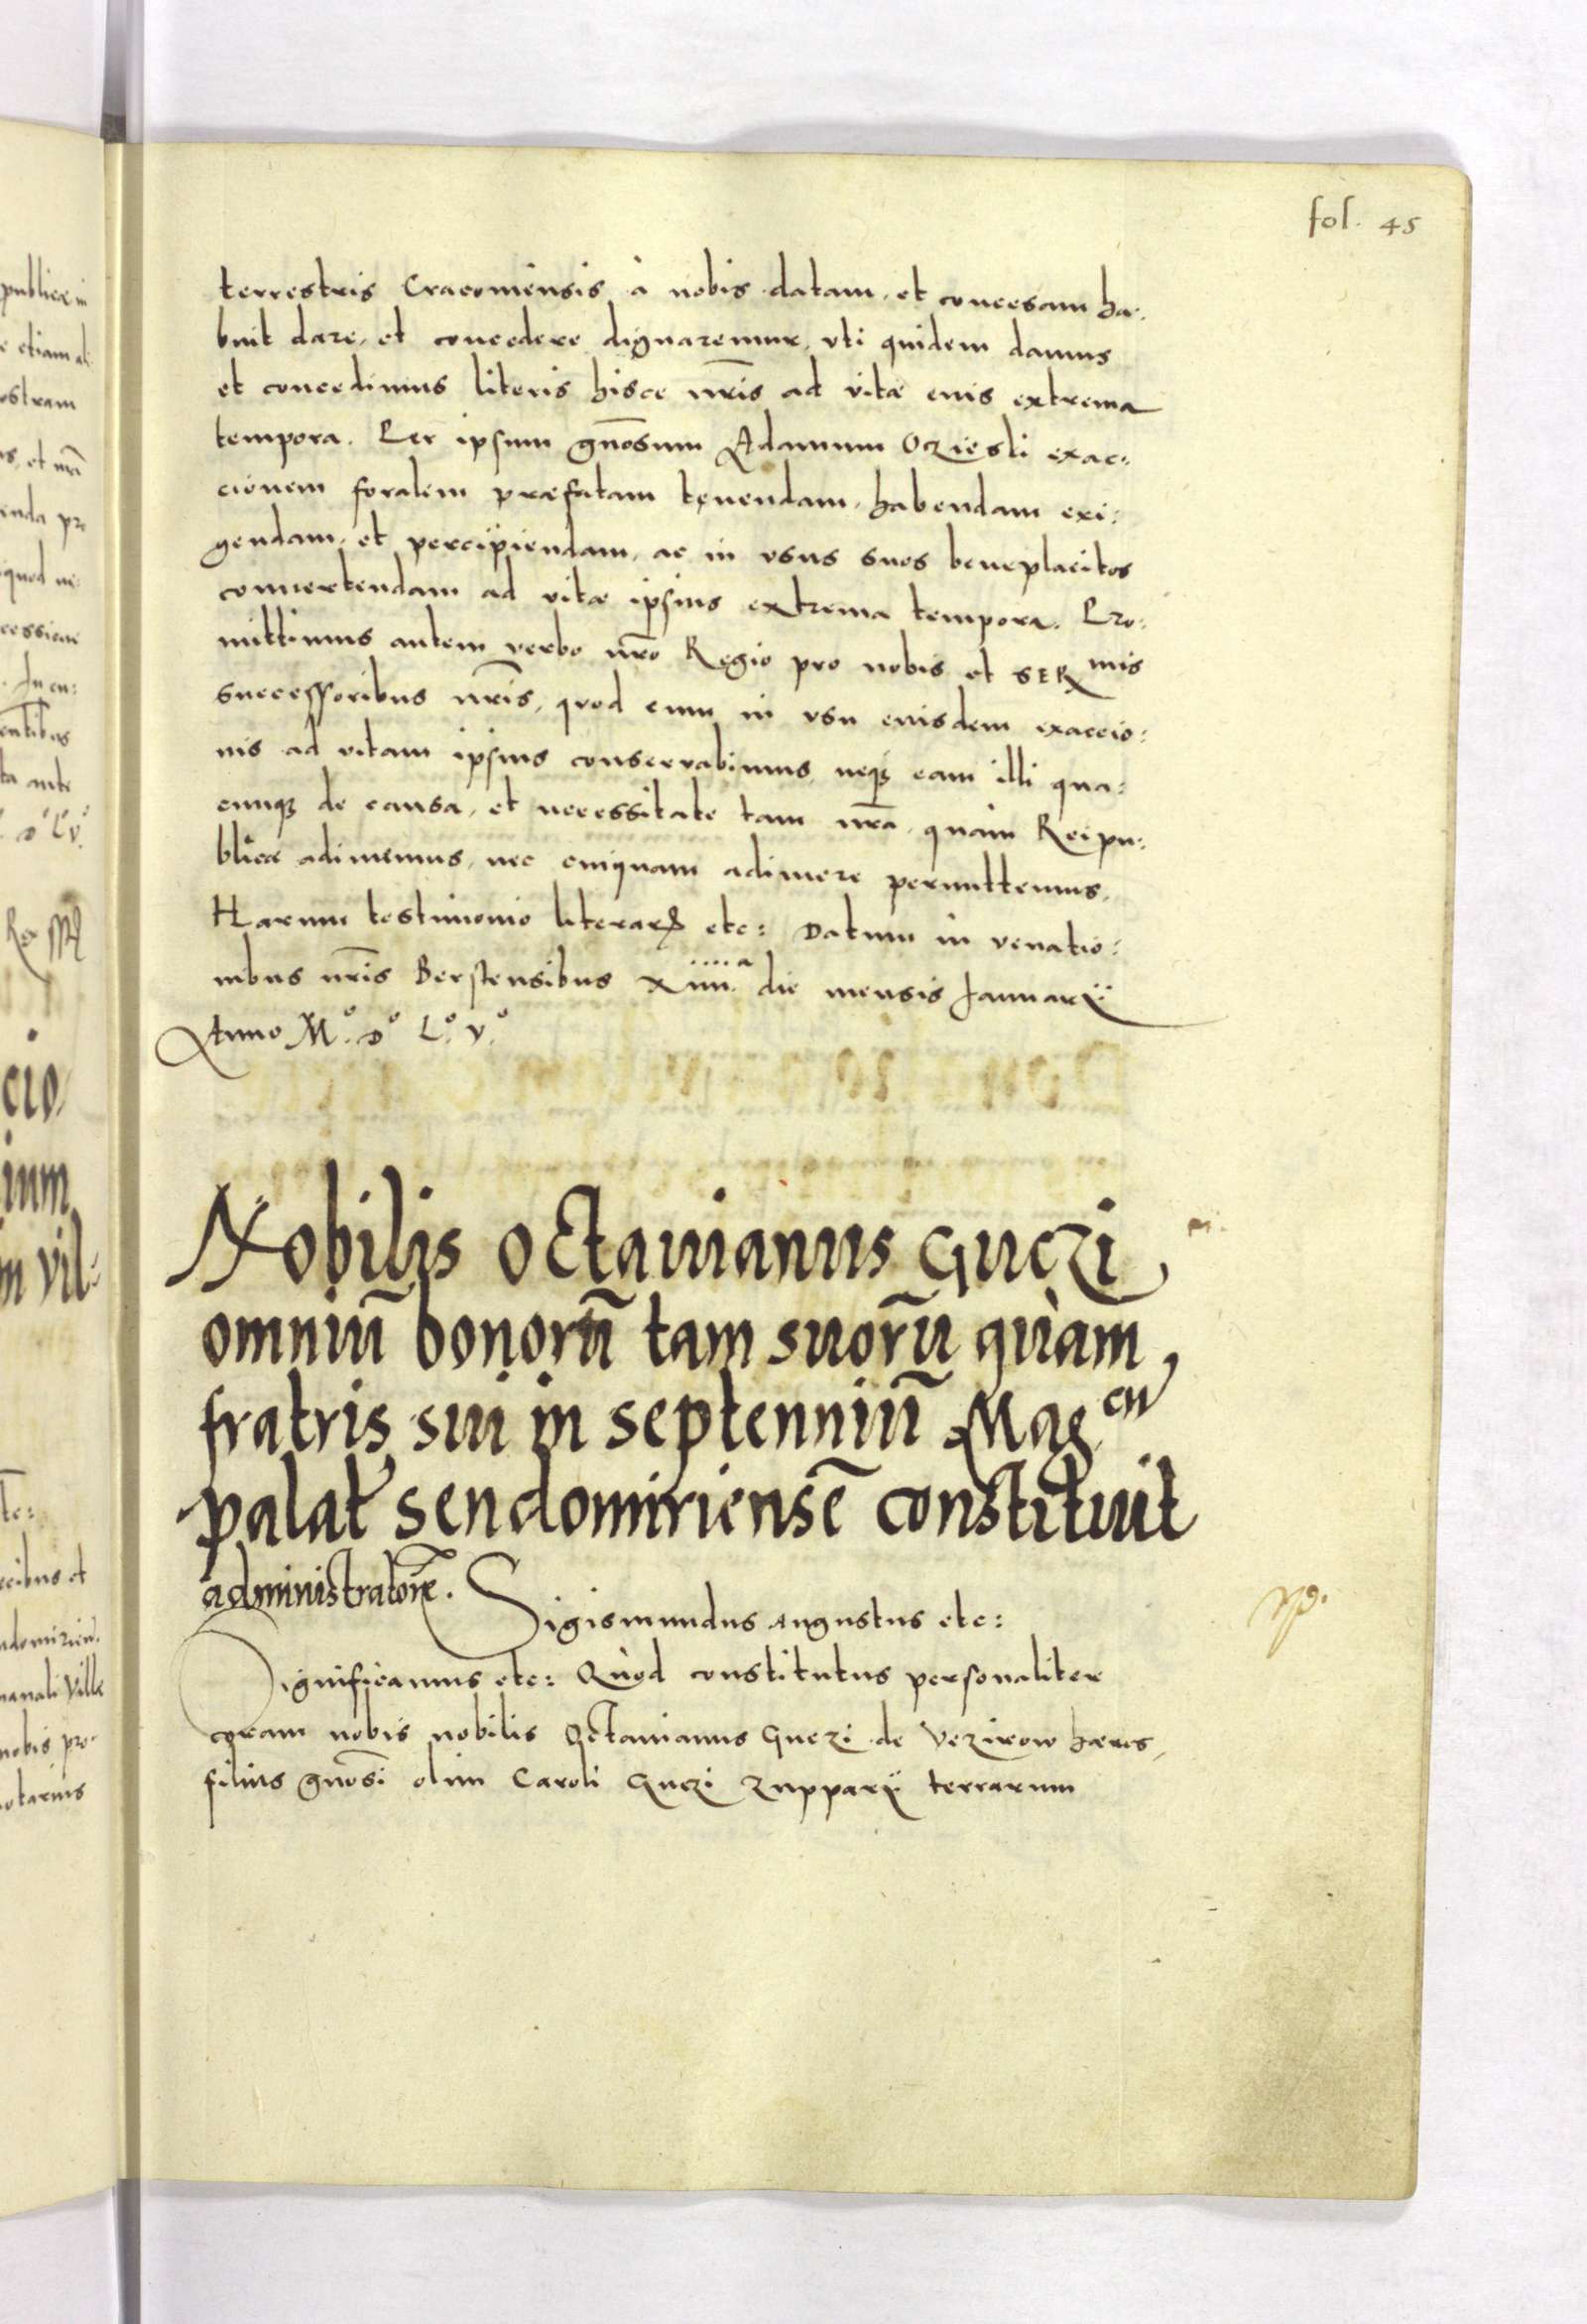 fol. 45
terrestris Cracouiensis à nobis datam, et concesam ha:
buit dare, et concedere dignaremur, vti quidem damus
et concedimus literis hisce nr̃is ad vitæ eius extrema
tempora. Per ipsum gñosum Adamum Oczieski exac:
cionem foralem præfatam tenendam, habendam exi:
gendam, et percipiendam, ac in vsus suos beneplacitos
conuertendam ad vitæ ipsius extrema tempora. Pro:
mittimus autem verbo nr̃o Regio pro nobis et SER mis
successoribus nr̃is, quod eum in vsu eiusdem exaccio:
nis ad vitam ipsius conseruabimus, neqȝ eam illi qua:
cunqȝ de causa, et necessitate tam nr̃a, quàm Reipu:
blicæ adimemus, nec cuiquam adimere permittemus.
Harum testimonio literarꝝ etc: Datum in venatio:
nibus nr̃is Berstensibus xiiii.a die mensis Januarÿ
Anno M.o D.o L.o V.o
Nobilis Octauianus Guczi
omniũ bonorũ tam suorũ quàm
fratris sui in septenniũ Mag.cu
palat̓ sendomiriensẽ constituit
administratorẽ. Sigismundus Augustus etc:
Significamus etc: Quòd constitutus personaliter
coram nobis nobilis Octauianus Guczi de Vezirow hæres,
filius gñosi olim Caroli Guczi zupparÿ terrarum